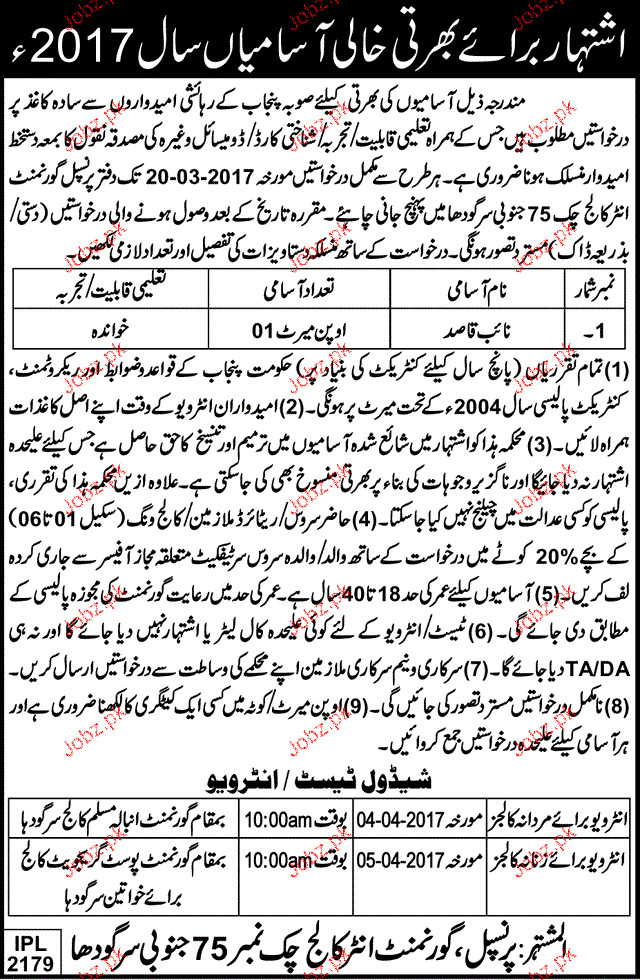 اشتہار برائے بھرتی خالی آسامیاں سال 2017ء
مندرجہ ذیل آسامیوں کی بھرتی کیلئے صوبہ پنجاب کے رہائشی امیدواروں سے سادہ کاغذ پر
درخواستیں مطلوب ہیں جس کے ہمراہ تعلیمی قابلیت/تجربہ/شناختی کارڈ/ڈومیسائل وغیرہ کی مصدقہ نقول کا بمعہ دستخط
امیدوار منسلک ہونا ضروری ہے۔ ہر طرح سے مکمل درخواستیں مورخہ 20-03-2017 تک دفتر پرنسپل گورنمنٹ
انٹر کالج چک 75 جنوبی سرگودھا میں پہنچ جانی چاہئے۔ مقررہ تاریخ کے بعد وصول ہونے والی درخواستیں (دستی/
بذریعہ ڈاک) مسترد تصور ہونگی۔ درخواست کے ساتھ منسلکہ دستاویزات کی تفصیل اور تعداد لازمی لکھیں۔
نمبر شمار نام آسامی تعداد آسامی تعلیمی قابلیت/تجربہ
1۔ نائب قاصد اوپن میرٹ 01 خواندہ
(1) تمام تقرریاں (پانچ سال کیلئے کنٹریکٹ کی بنیاد پر) حکومت پنجاب کے قواعد و ضوابط اور ریکروٹمنٹ،
کنٹریکٹ پالیسی سال 2004ء کے تحت میرٹ پر ہونگی۔ (2) امیدواران انٹرویو کے وقت اپنے اصل کاغذات
ہمراہ لائیں۔ (3) محکمہ ہذا کو اشتہار میں شائع شدہ آسامیوں میں ترمیم اور تنسیخ کا حق حاصل ہے جس کیلئے علیحدہ
اشتہار نہ دیا جائیگا اور ناگزیر وجوہات کی بناء پر بھرتی منسوخ بھی کی جا سکتی ہے۔ علاوہ ازیں محکمہ ہذا کی تقرری،
پالیسی کو کسی عدالت میں چیلنج نہیں کیا جا سکتا۔ (4) حاضر سروس/ریٹائرڈ ملازمین/کالج ونگ (سکیل 01 تا 06)
کے بچے 20% کوٹے میں درخواست کے ساتھ والد/والدہ سروس سرٹیفکیٹ متعلقہ مجاز آفیسر سے جاری کردہ
لف کریں۔ (5) آسامیوں کیلئے عمر کی حد 18 تا 40 سال ہے۔ عمر کی حد میں رعایت گورنمنٹ کی مجوزہ پالیسی کے
مطابق دی جائے گی۔ (6) ٹیسٹ/انٹرویو کے لئے کوئی علیحدہ کال لیٹر یا اشتہار نہیں دیا جائے گا اور نہ ہی
TA/DA دیا جائے گا۔ (7) سرکاری و نیم سرکاری ملازمین اپنے محکمے کی وساطت سے درخواستیں ارسال کریں۔
(8) نامکمل درخواستیں مسترد تصور کی جائیں گی۔ (9) اوپن میرٹ/کوٹہ میں کسی ایک کیٹگری کا لکھنا ضروری ہے اور
ہر آسامی کیلئے علیحدہ درخواستیں جمع کروائیں۔
شیڈول ٹیسٹ / انٹرویو
انٹرویو برائے مردانہ کالجز مورخہ 04-04-2017 بوقت 10:00am بمقام گورنمنٹ انبالہ مسلم کالج سرگودہا
انٹرویو برائے زنانہ کالجز مورخہ 05-04-2017 بوقت 10:00am بمقام گورنمنٹ پوسٹ گریجویٹ کالج
برائے خواتین سرگودہا
المشتہر: پرنسپل، گورنمنٹ انٹر کالج چک نمبر 75 جنوبی سرگودھا
IPL
2179
Jobz.pk